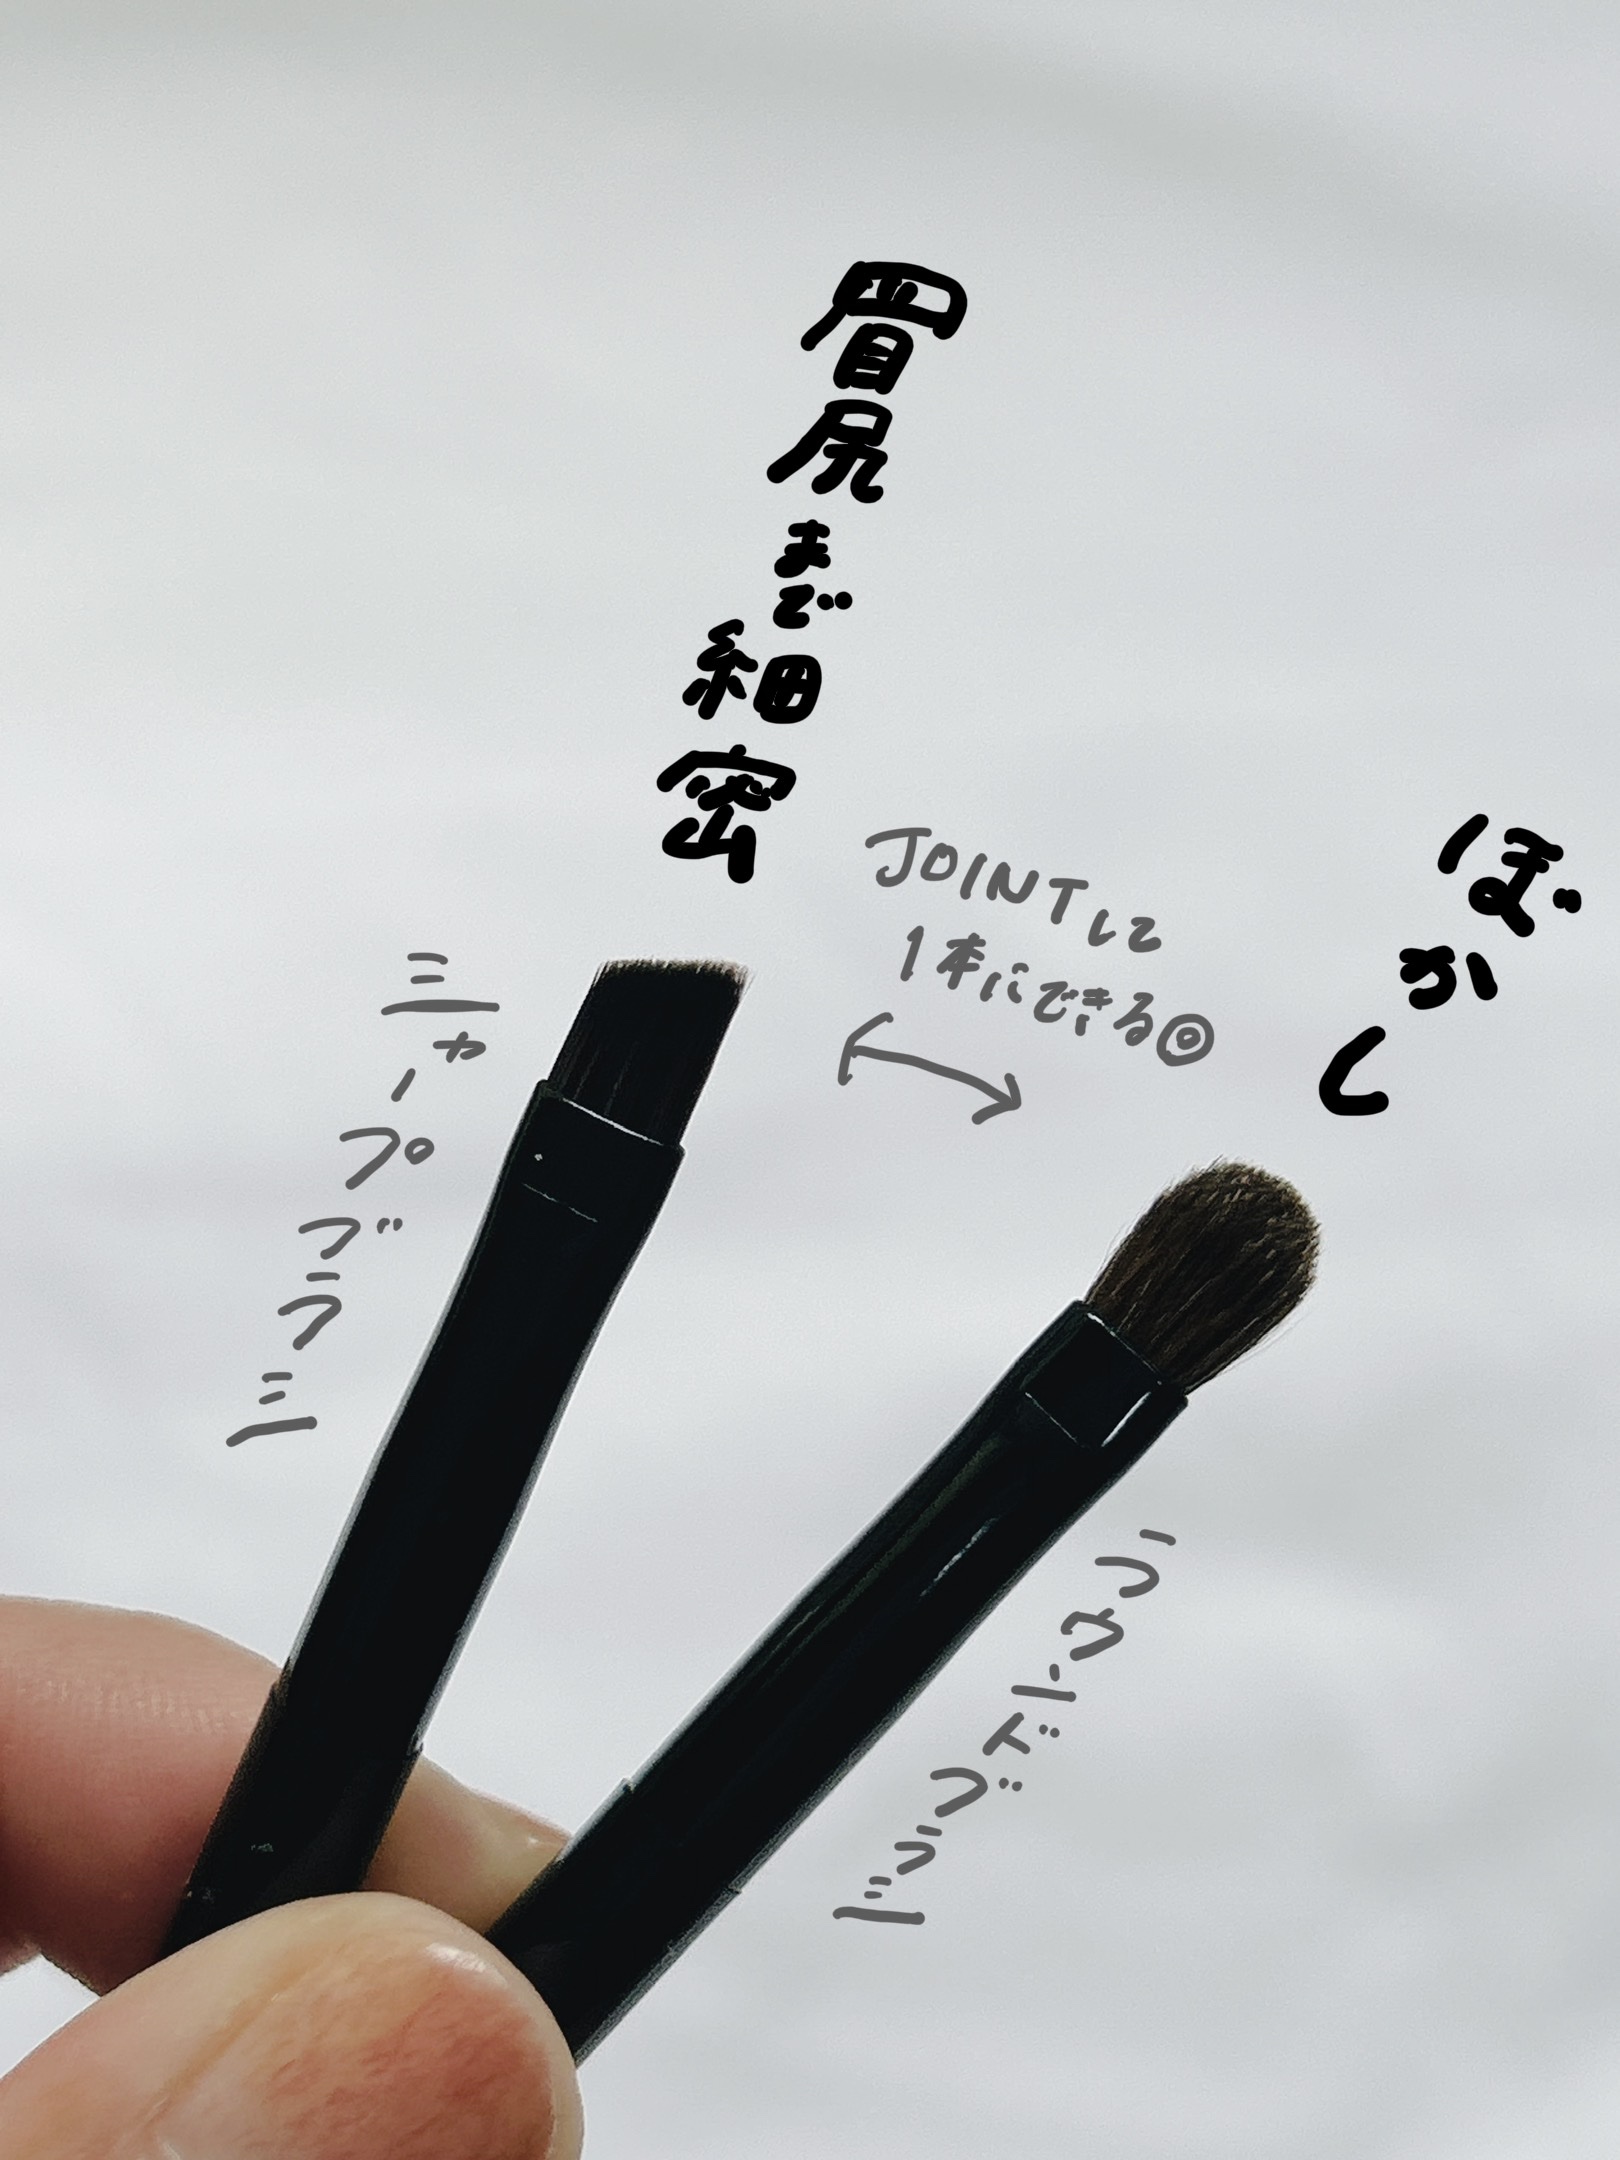 眉尻まで細密
ぼかし
JOINTして
1本にできる◎
シャープブラシ
ラウンドブラシ